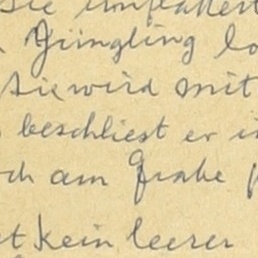 Sie umflattert
Jüngling lo
Sie wird mit
beschliest er i
ch am Grabe p
t kein leerer